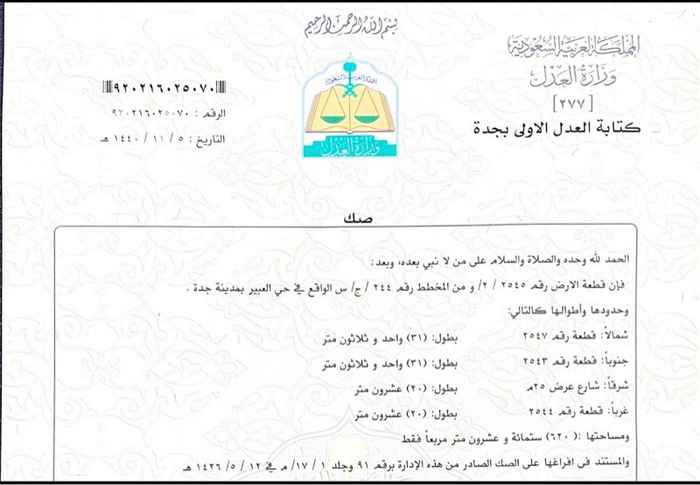 بسم الله الرحمن الرحيم
المملكة العربية السعودية
وزارة العدل
[٢٧٧]
كتابة العدل الاولى بجدة
٩٢٠٢١٦٠٢٥٠٧٠
الرقم : ٩٢٠٢١٦٠٢٥٠٧٠
التاريخ : ٥ / ١١ / ١٤٤٠ هـ
وزارة العدل
صك
الحمد لله وحده والصلاة والسلام على من لا نبي بعده، وبعد:
فإن قطعة الارض رقم ٢٥٤٥ / ٢/ و من المخطط رقم ٢٤٤ / ج/ س الواقع في حي العبير بمدينة جدة .
وحدودها وأطوالها كالتالي:
شمالاً: قطعة رقم ٢٥٤٧ بطول: (٣١) واحد و ثلاثون متر
جنوباً: قطعة رقم ٢٥٤٣ بطول: (٣١) واحد و ثلاثون متر
شرقاً: شارع عرض ٢٥م بطول: (٢٠) عشرون متر
غرباً: قطعة رقم ٢٥٤٤ بطول: (٢٠) عشرون متر
ومساحتها :( ٦٢٠) ستمائة و عشرون متر مربعاً فقط
والمستند في افراغها على الصك الصادر من هذه الإدارة برقم ٩١ وجلد ١ / ١٧/ م في ١٢ / ٥/ ١٤٢٦ هـ